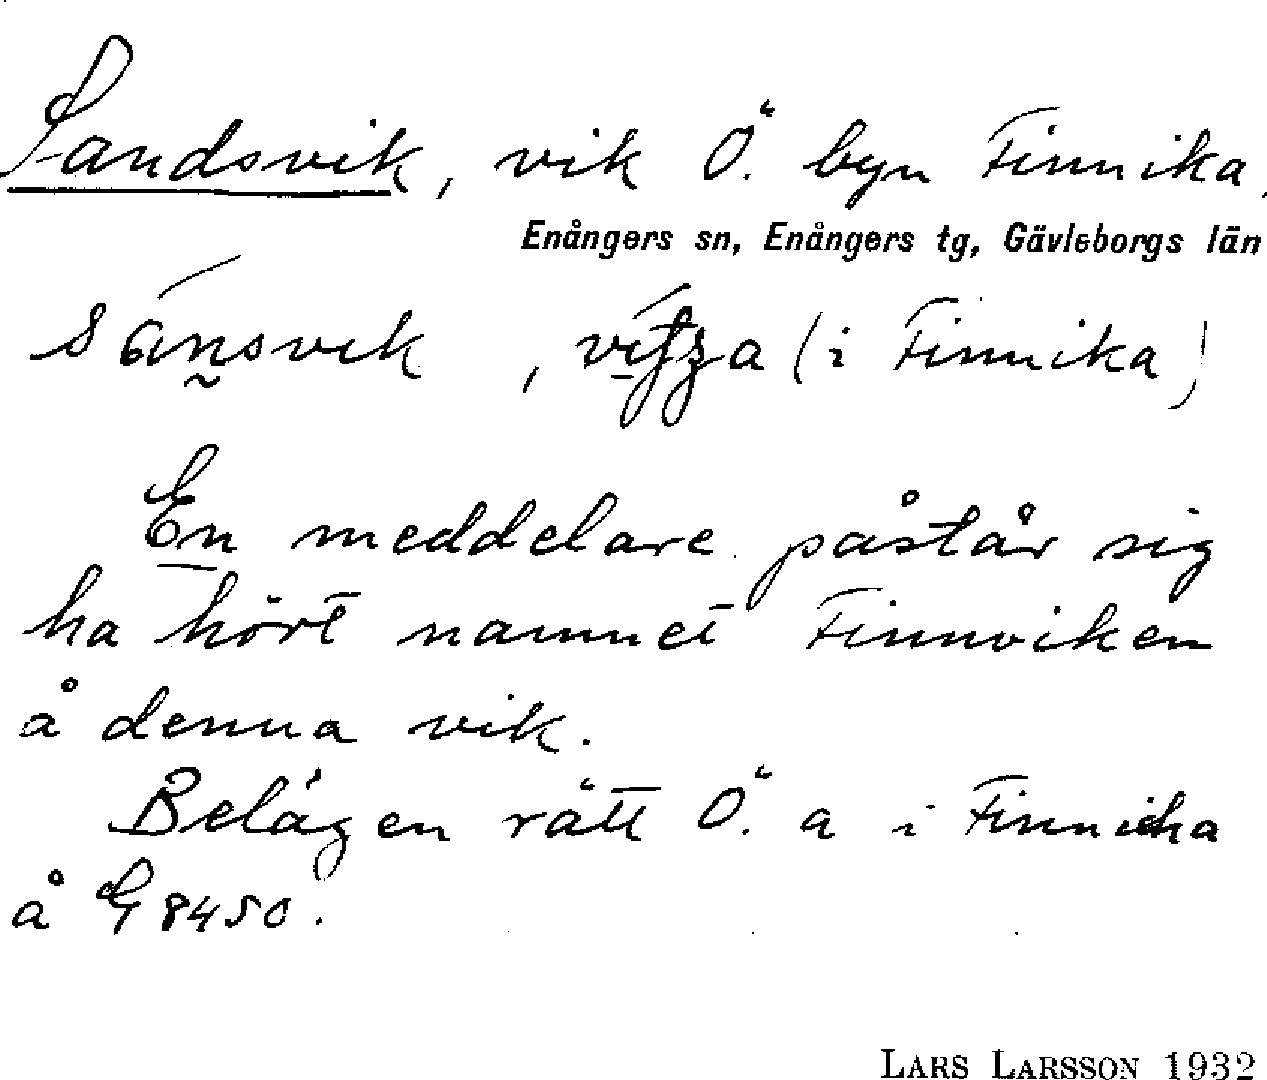 Sandsvik, vik Ö. byn Finnika.
Enångers sn, Enångers tg, Gävleborgs län
(i Finnika)
En meddelare påstår sig
ha hört namnet Finnviken
å denna vik.
Belägen rätt Ö. a i Finnika
å G 8450.
LARS LARSSON 1932